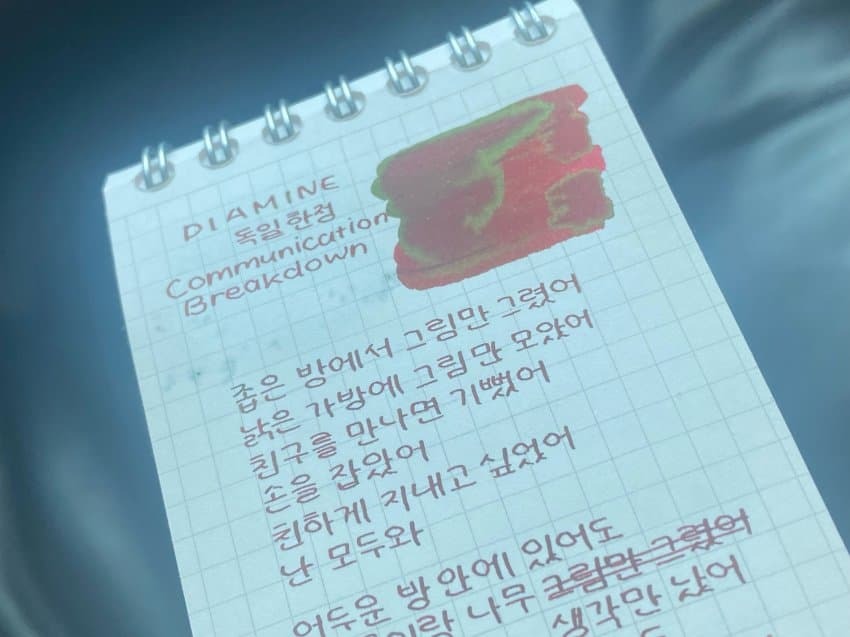 DIAMINE
독일한정
Communication
Breakdown
좁은 방에서 그림만 그렸어
낡은 가방에 그림만 모았어
친구를 만나면 기뻤어
손을 잡았어
친하게 지내고 싶었어
난 모두와
어두운 방 안에 있어도
나무 그림만 그렸어
생각만 났어